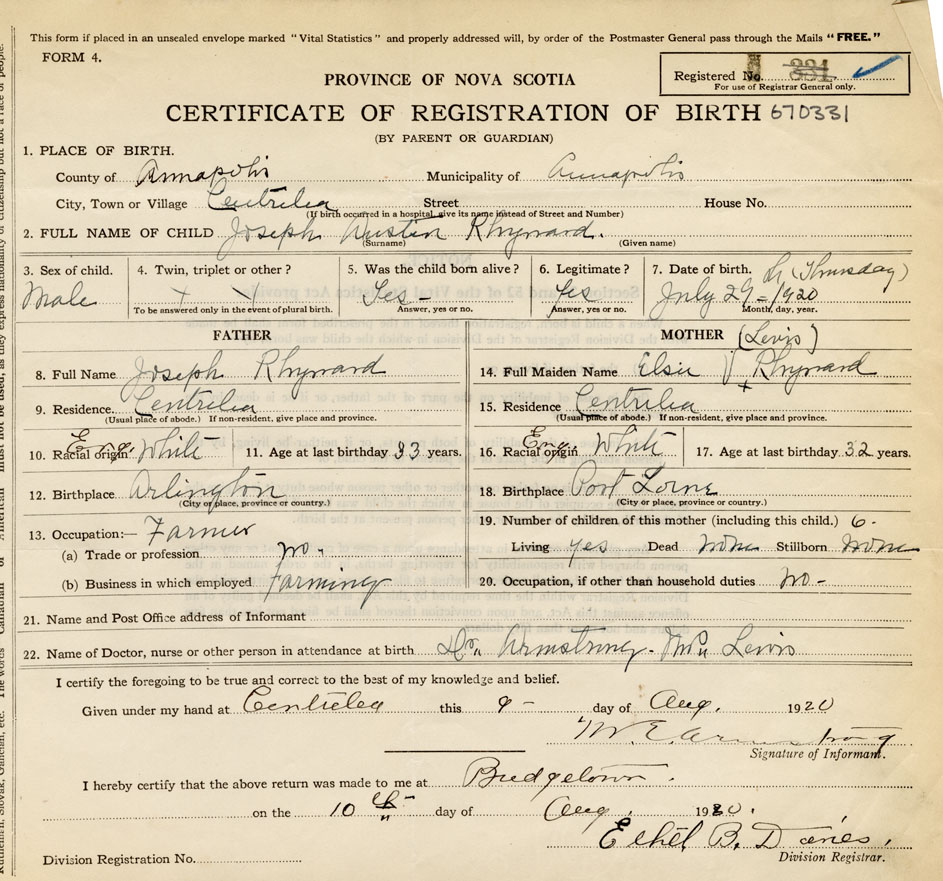 This form if placed in an unsealed envelope marked "Vital Statistics" and properly addressed will, by order of the Postmaster General pass through the Mails "FREE."
FORM 4.
Registered No. 331
For use of Registrar General only.
PROVINCE OF NOVA SCOTIA
CERTIFICATE OF REGISTRATION OF BIRTH 670331
(BY PARENT OR GUARDIAN)
1. PLACE OF BIRTH.
County of Annapolis Municipality of Annapolis
City, Town or Village Centrelea Street House No.
(If birth occurred in a hospital, give its name instead of Street and Number)
2. FULL NAME OF CHILD Joseph Austin Rhynard.
(Surname) (Given name)
3. Sex of child. 4. Twin, triplet or other? 5. Was the child born alive? 6. Legitimate? 7. Date of birth. (Thursday)
Male Yes- Yes July 29 = 1920
To be answered only in the event of plural birth. Answer, yes or no. Answer, yes or no. Month, day, year.
FATHER MOTHER (Lewis)
8. Full Name Joseph Rhynard 14. Full Maiden Name Elsie V Rhynard
9. Residence Centrelea 15. Residence Centrelea
(Usual place of abode.) If non-resident, give place and province. (Usual place of abode.) If non-resident, give place and province.
10. Racial origin Eng. White 11. Age at last birthday 33 years. 16. Racial origin Eng. White 17. Age at last birthday 32 years.
12. Birthplace Arlington 18. Birthplace Port Lorne
(City or place, province or country.) (City or place, province or country.)
13. Occupation:— Farmer 19. Number of children of this mother (including this child.) 6-
(a) Trade or profession no. Living yes Dead none Stillborn none
(b) Business in which employed Farming 20. Occupation, if other than household duties no-
21. Name and Post Office address of Informant
22. Name of Doctor, nurse or other person in attendance at birth Dr. Armstrong - Mrs. Lewis
I certify the foregoing to be true and correct to the best of my knowledge and belief.
Given under my hand at Centrelea this 9- day of Aug. 1920
M. E. Armstrong
Signature of Informant.
I hereby certify that the above return was made to me at Bridgetown.
on the 10th day of Aug. 1920.
Ethel B. Davies,
Division Registrar.
Division Registration No.